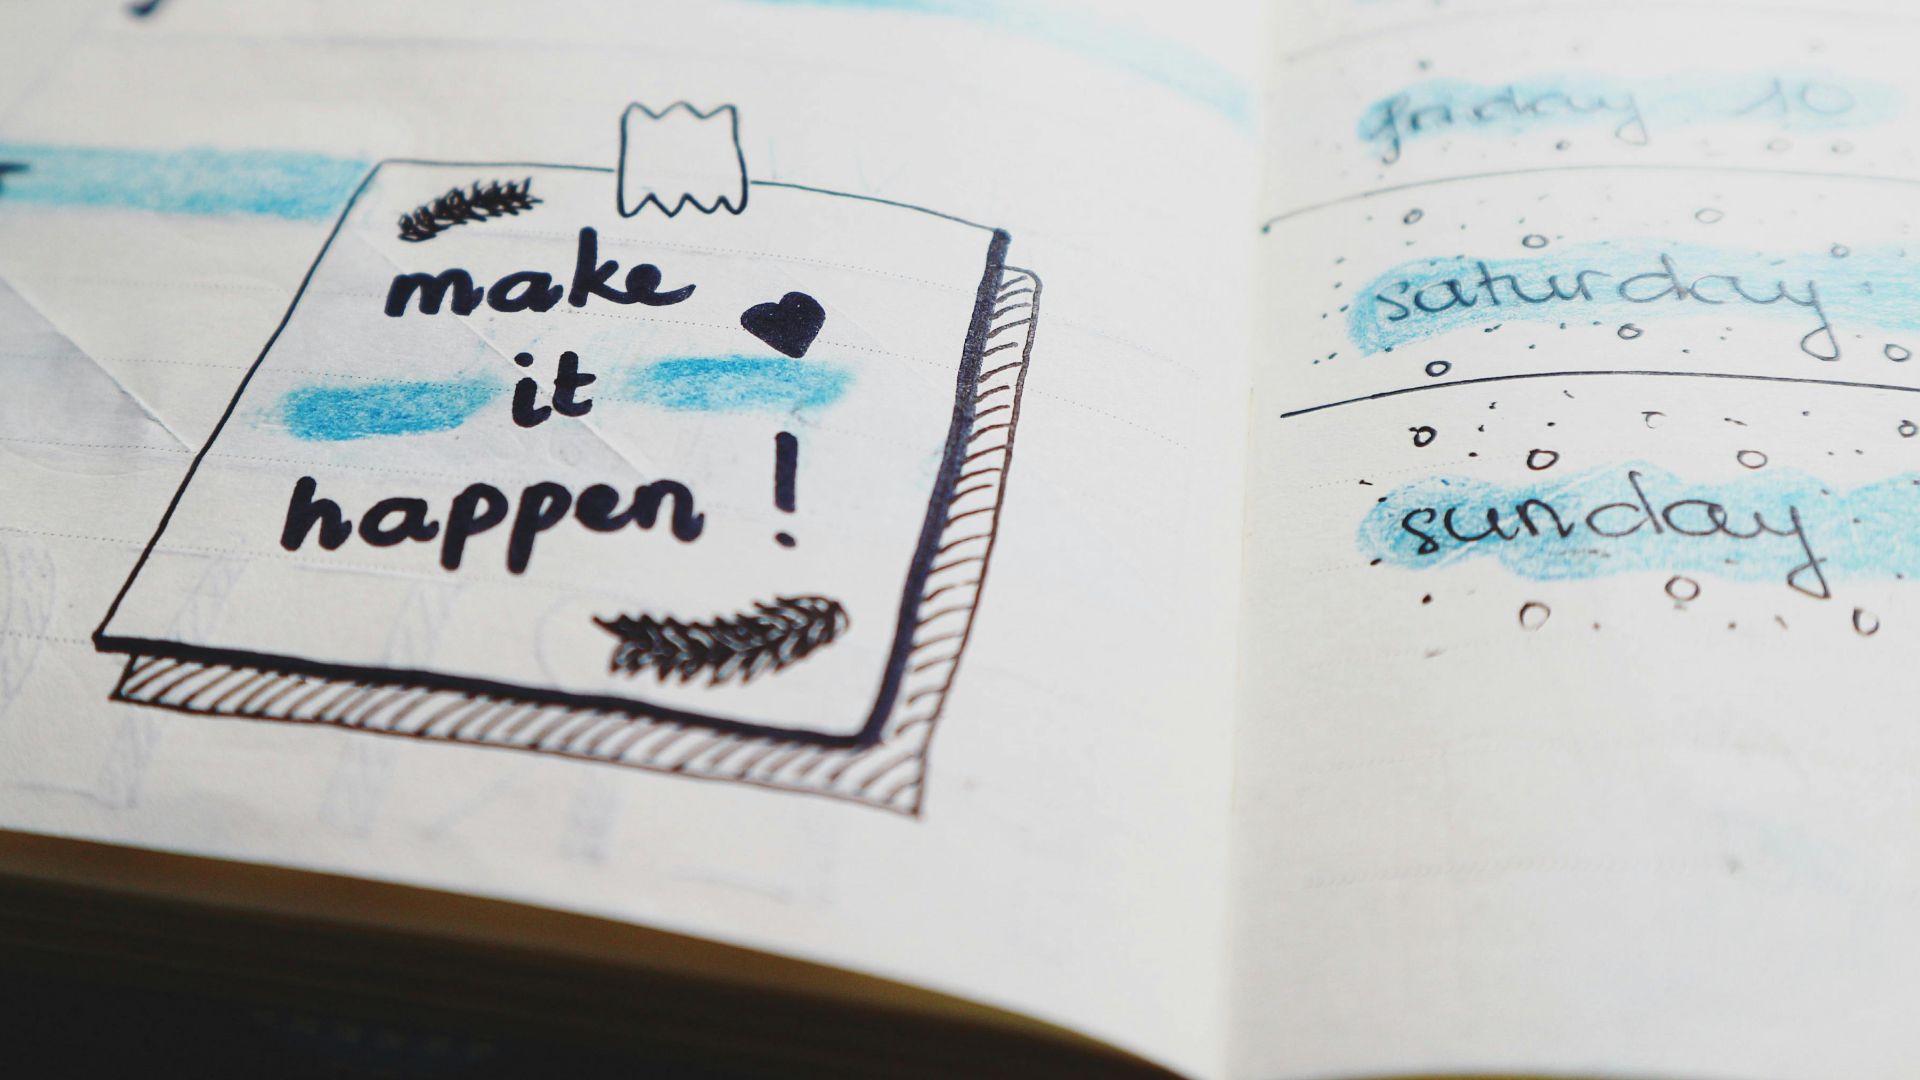 make
it
happen !
friday 10
saturday
sunday